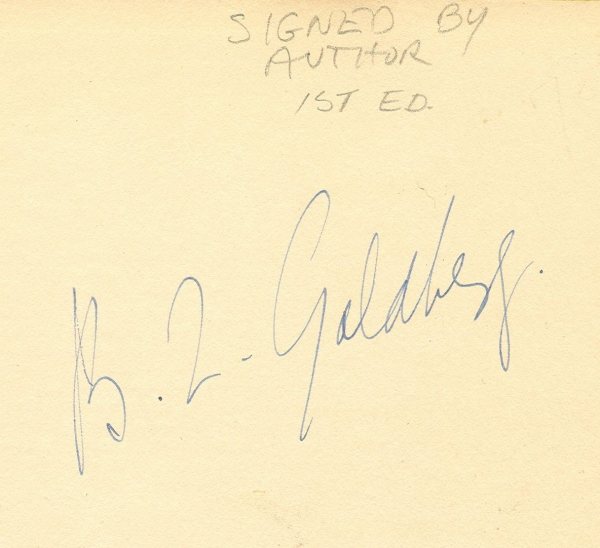 SIGNED BY
AUTHOR
1ST ED.
B. Z. Goldberg.